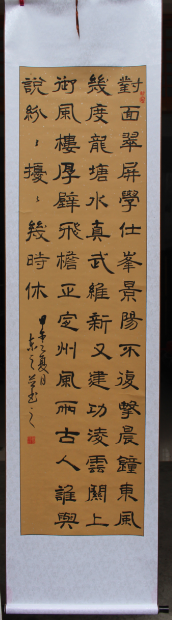 對面翠屏學仕峯景陽不復擊晨鐘東風
幾度龍塘水真武維新又建功凌雲關上
御風樓厚壁飛檐正定州風雨古人誰與
說紛〻擾〻幾時休
甲午之夏月